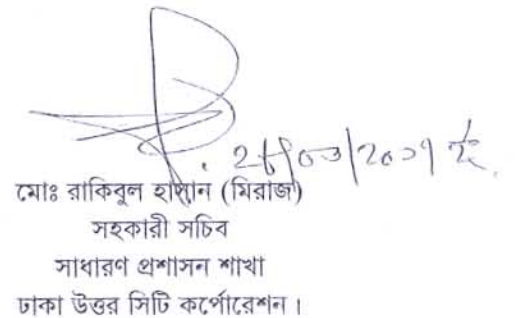 ২৮/০৩/২০১৭ ইং
মোঃ রাকিবুল হাসান (মিরাজ)
সহকারী সচিব
সাধারণ প্রশাসন শাখা
ঢাকা উত্তর সিটি কর্পোরেশন।